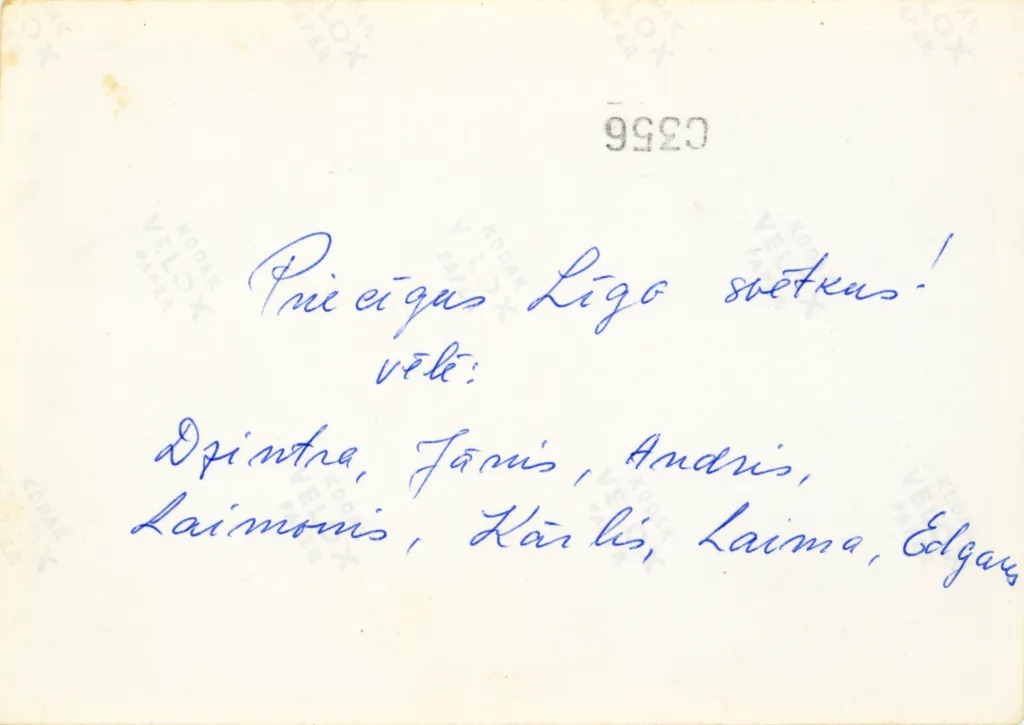 C356
Priecīgus Līgo svētkus!
vēlē:
Dzintra, Jānis, Andris,
Laimonis, Kārlis, Laima, Edgars
KODAK
VELOX
PAPER